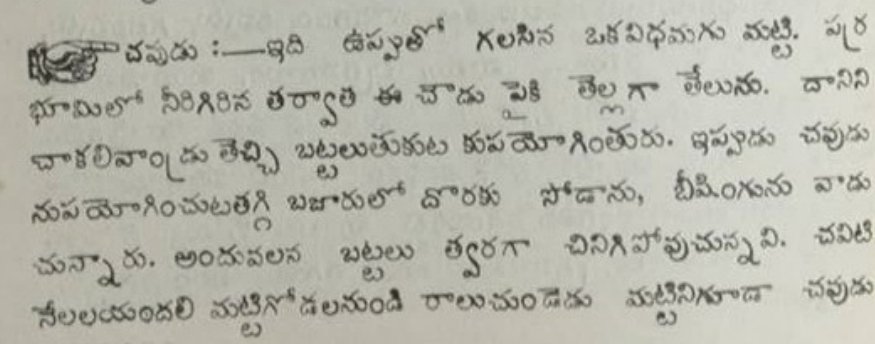 చవుడు :—ఇది ఉప్పుతో గలసిన ఒకవిధమగు మట్టి. పర్ర
భూమిలో నీరిగిరిన తర్వాత ఈ చౌడు పైకి తెల్లగా తేలును. దానిని
చాకలివాండ్రు తెచ్చి బట్టలుతుకుట కుపయోగింతురు. ఇప్పుడు చవుడు
నుపయోగించుటతగ్గి బజారులో దొరకు సోడాను, బీషింగును వాడు
చున్నారు. అందువలన బట్టలు త్వరగా చినిగిపోవుచున్నవి. చవిటి
నేలలయందలి మట్టిగోడలనుండి రాలుచుండెడు మట్టినిగూడా చవుడు